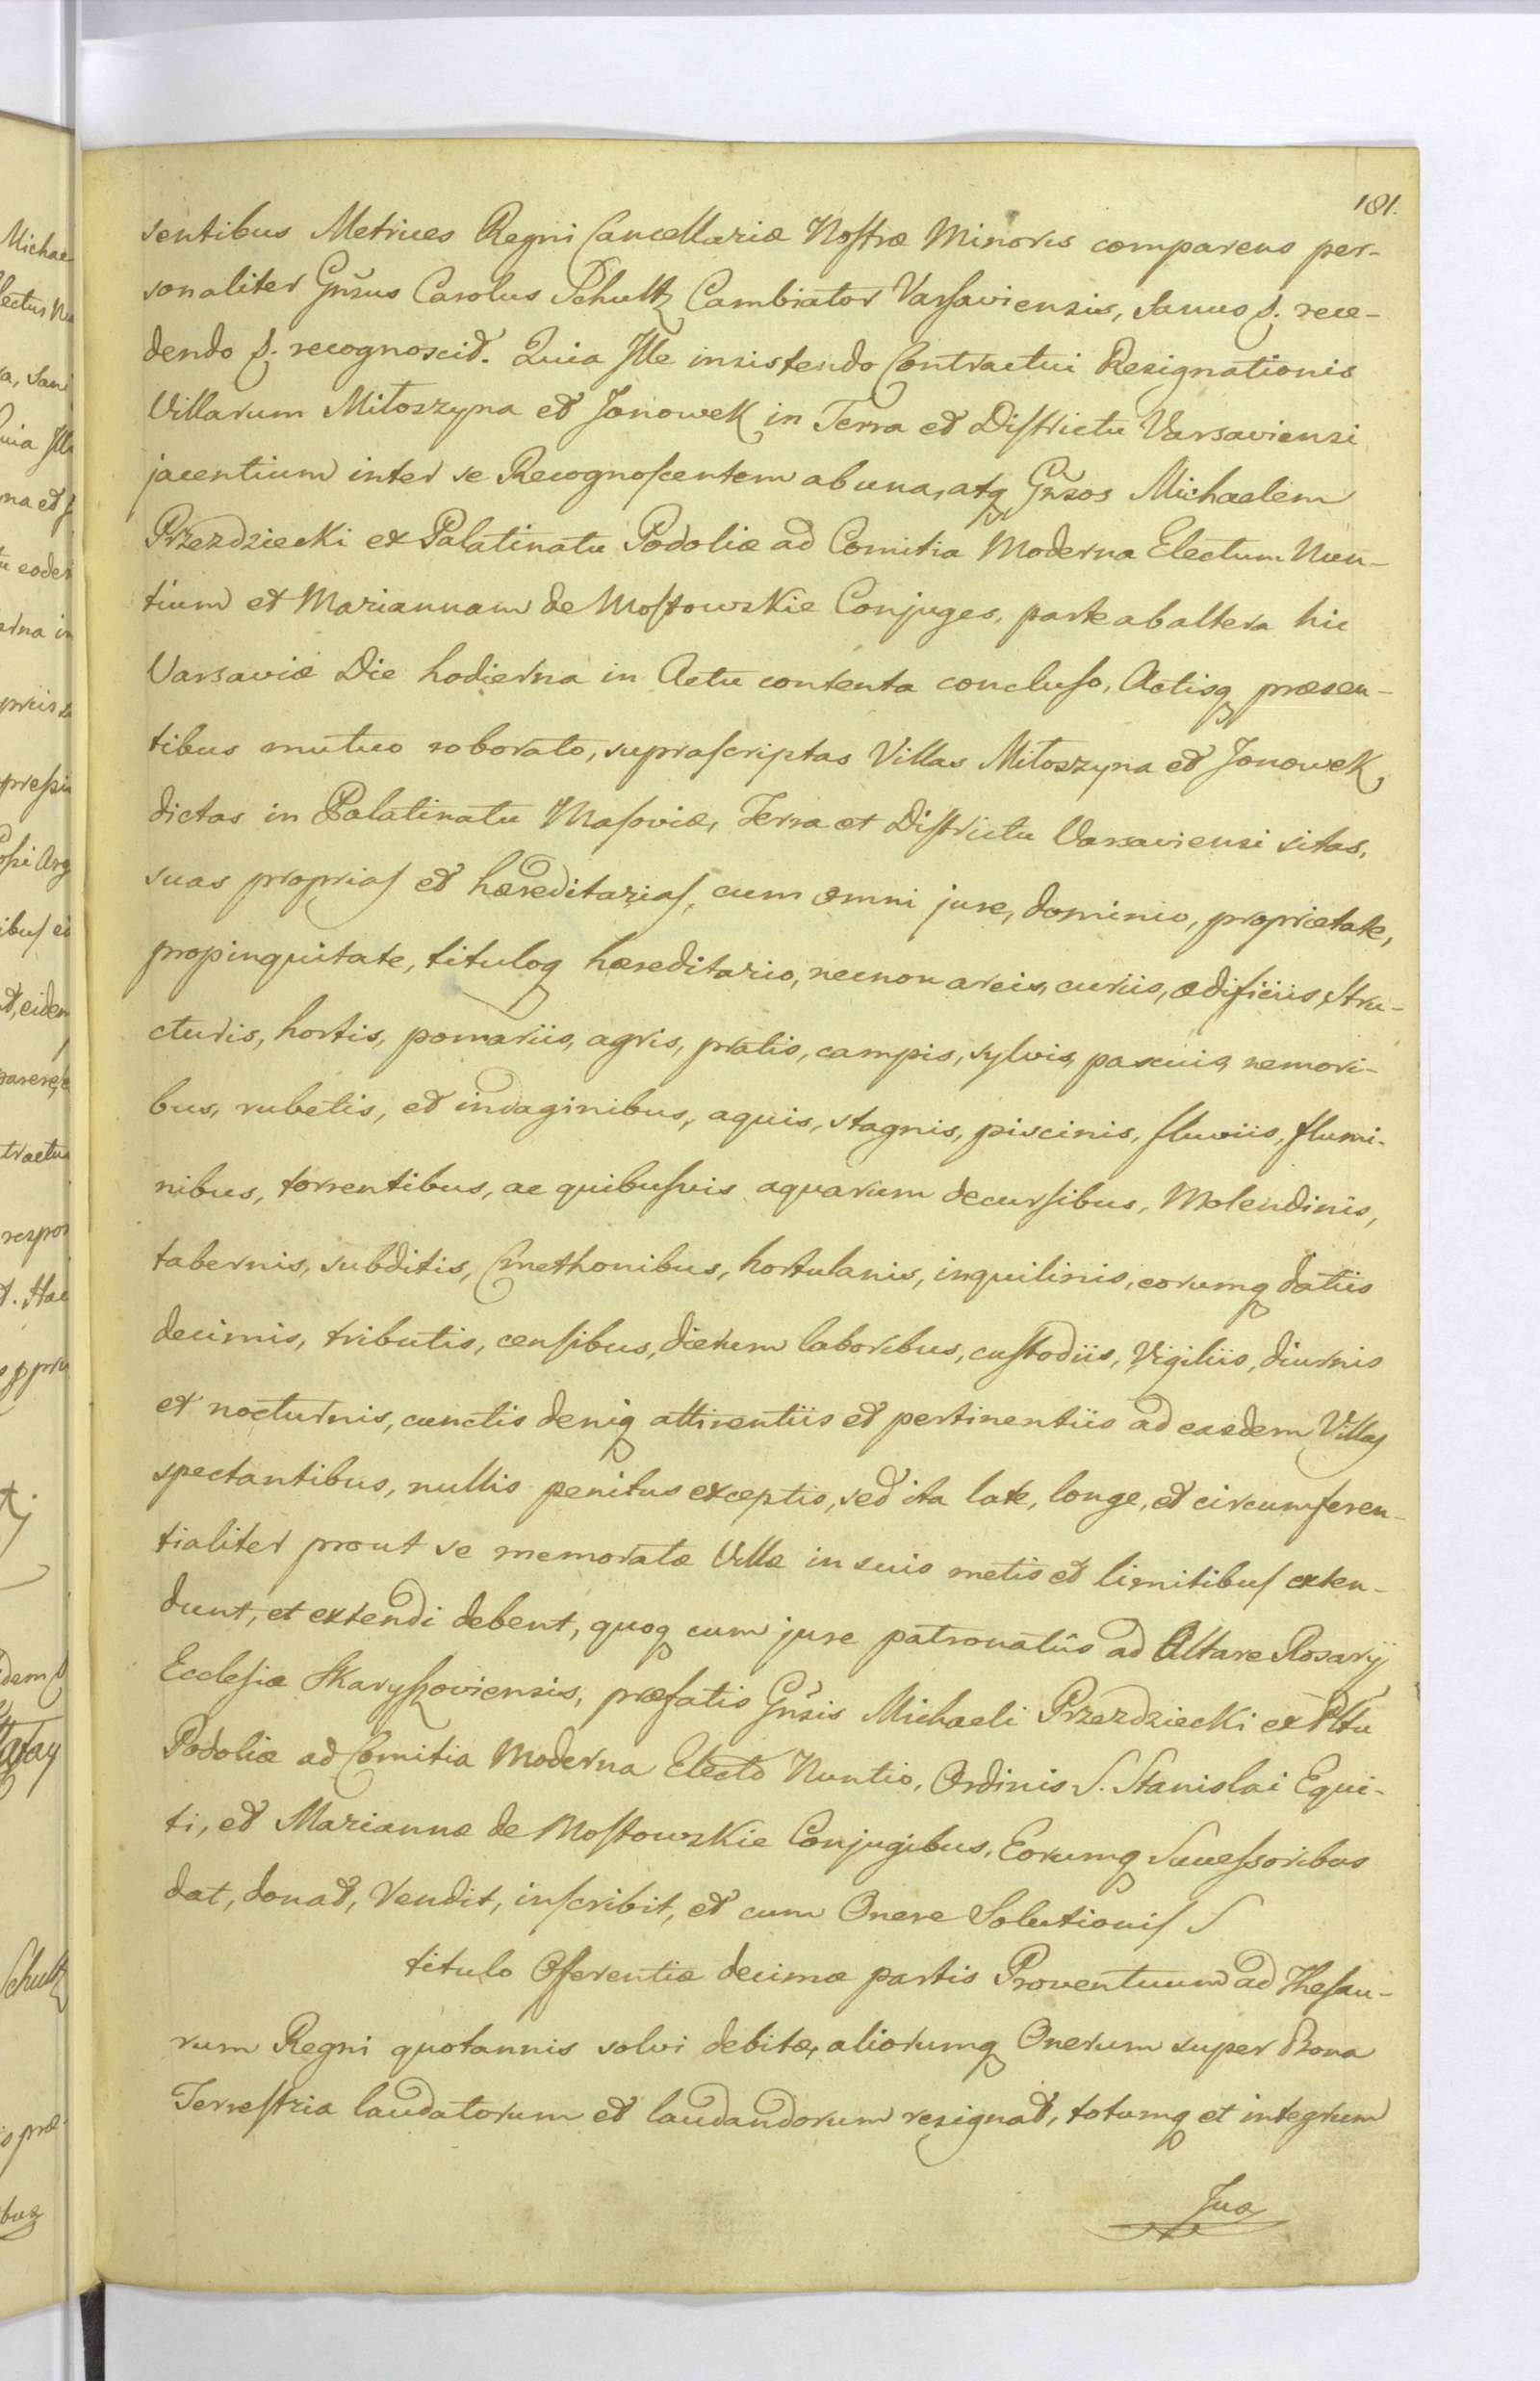 181.
sentibus Metrices Regni Cancellariæ Nostræ Minoris comparens per-
sonaliter Gn̄sus Carolus Schultz Cambiator Varsaviensis, sanus s. rece-
dendo s. recognoscit. Quia Ille insistendo Contractui Resignationis
Villarum Miłoszyna et Janowek in Terra et Districtu Varsaviensi
jacentium inter se Recognoscentem ab una, atq Gn̄sos Michaelem
Przezdziecki ex Palatinatu Podoliæ ad Comitia Moderna Electum Nun-
tium et Mariannam de Mostowskie Conjuges, parte ab altera hic
Varsaviæ Die hodierna in Actu contenta concluso, Actisq præsen-
tibus mutuo roborato, suprascriptas Villas Miłoszyna et Janowek,
dictas in Palatinatu Masoviæ, Terra et Districtu Varsaviensi sitas,
suas proprias et hæreditarias, cum omni jure, dominio, proprietate,
propinquitate, tituloq hæreditario, necnon areis, curiis, ædificiis, stru-
cturis, hortis, pomariis, agris, pratis, campis, sylvis, pascuis, nemori-
bus, rubetis, et indaginibus, aquis, stagnis, piscinis, fluviis, flumi-
nibus, torrentibus, ac quibusvis aquarum decursibus, Molendinis,
tabernis, subditis, Cmethonibus, hortulanis, inquilinis, eorumq datiis
decimis, tributis, censibus, dierum laboribus, custodiis, Vigiliis, diurnis
et nocturnis, cunctis deniq attinentiis et pertinentiis ad easdem Villas
spectantibus, nullis penitus exceptis, sed ita late, longe, et circumferen-
tialiter prout se memoratæ Villæ in suis metis et limitibus exten-
dunt, et extendi debent, quoq cum jure patronatûs ad Altare Rosarij
Ecclesiæ Skaryszoviensis, præfatis Gn̄sis Michaeli Przezdziecki ex Pltu
Podoliæ ad Comitia Moderna Electo Nuntio, Ordinis S. Stanislai Equi-
ti, et Mariannæ de Mostowskie Conjugibus, Eorumq Successoribus
dat, donat, Vendit, inscribit, et cum Onere Solutionis S
titulo Offerentiæ decimæ partis Proventuum ad Thesau-
rum Regni quotannis solvi debitæ, aliorumq Onerum super Bona
Terrestria laudatorum et laudandorum resignat, totumq et integrum
Jus